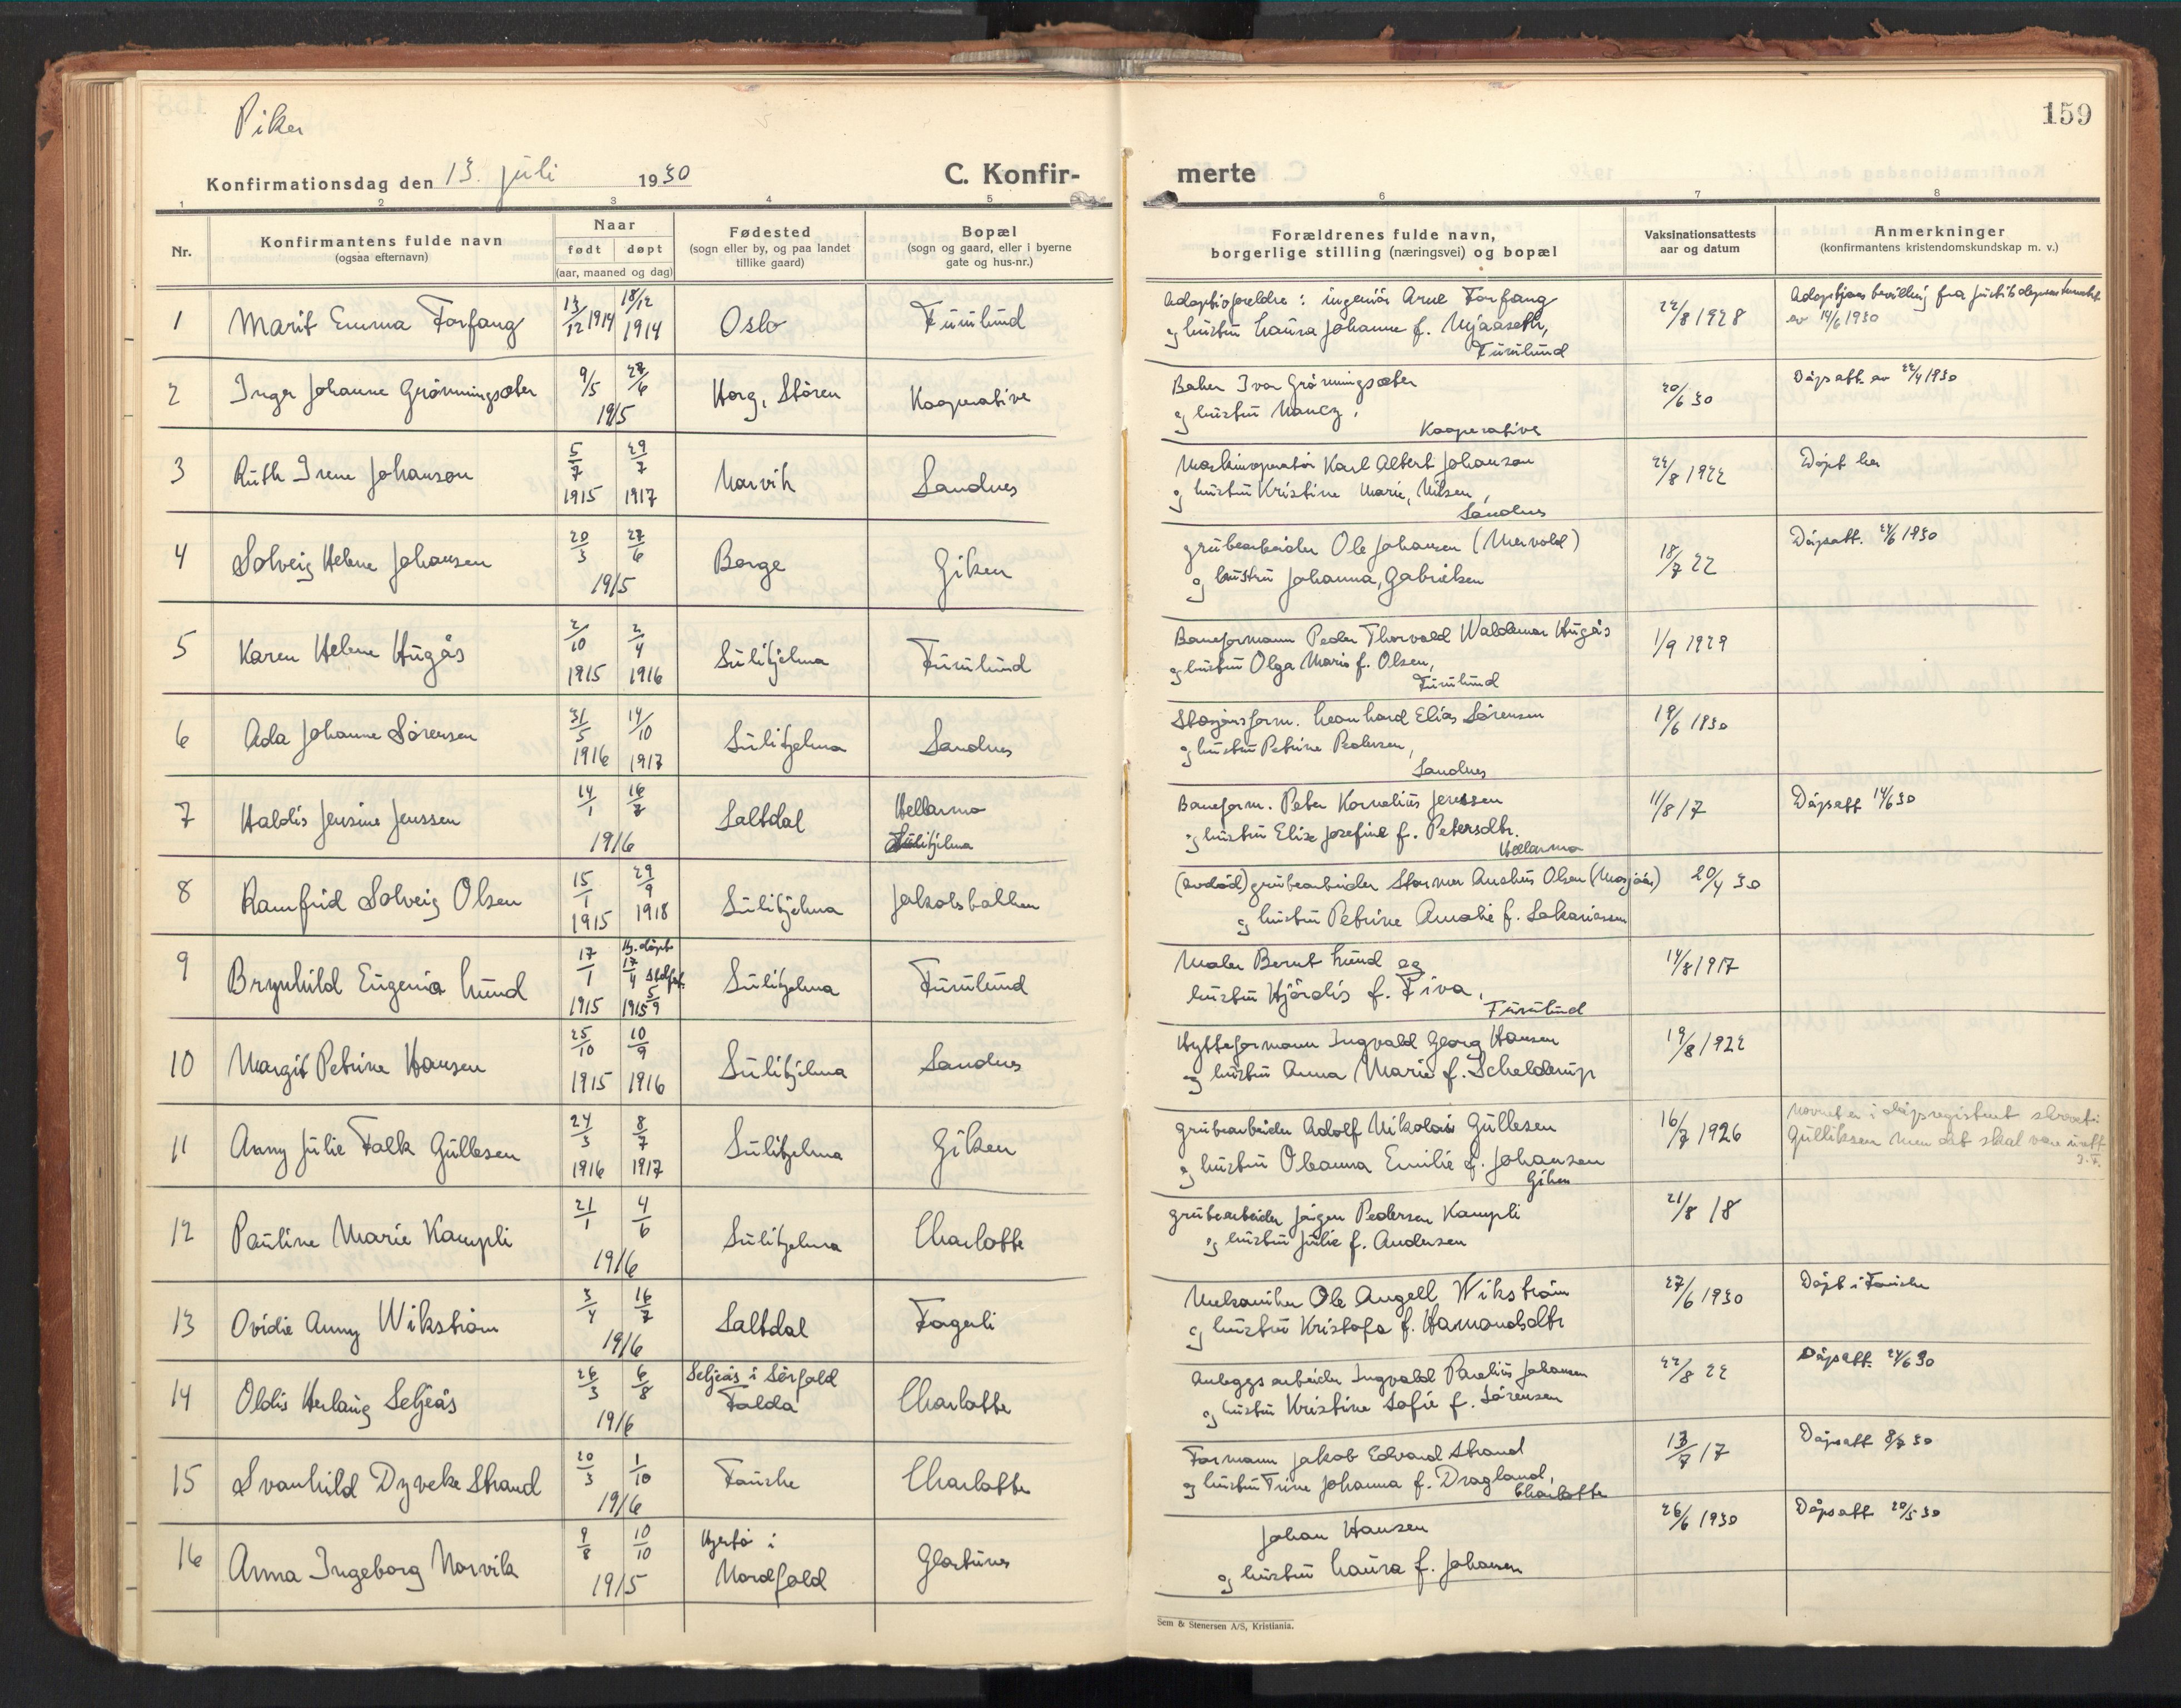 Piker
159
Konfirmationsdag den 13. juli 1930
C. Konfir-
merte
1 2 3 4 5 6 7 8
Nr.
Konfirmantens fulde navn
(ogsaa efternavn)
Naar
født døpt
(aar, maaned og dag)
Fødested
(sogn eller by, og paa landet
tillike gaard)
Bopæl
(sogn og gaard, eller i byerne
gate og hus-nr.)
Forældrenes fulde navn,
borgerlige stilling (næringsvei) og bopæl
Vaksinationsattests
aar og datum
Anmerkninger
(konfirmantens kristendomskundskap m. v.)
1 Marit Emma Torfang 13/12 1914 18/12 1914 Oslo Furulund
Adoptivforeldre: ingeniör Arne Torfang
og hustru Laura Johanne f. Mjaaseth,
Furulund
22/8 1928
av 14/6 1930
2 Inger Johanne Grönningsæter 9/5 27/6 1915 Horg, Stören Kooperative
Baker Ivar Grönningsæter
og hustru Nancy,
Kooperative
20/6 30
Dåpsatt. av 22/4 1930
3 Ruth Irene Johanson 5/7 1915 29/7 1917 Narvik Sandnes
Maskinoperatör Karl Albert Johanson
og hustru Kristine Marie, Nilsen,
Sandnes
22/8 1922
Döpt her
4 Solveig Helene Johansen 20/3 27/6 1915 Borge Giken
grubearbeider Ole Johansen (Mervold)
og hustru Johanna, Gabrielsen
18/7 22
Dåpsatt. 24/6 1930
5 Karen Helene Hugås 2/10 1915 2/4 1916 Sulitjelma Furulund
Baneformann Peder Thorvald Waldemar Hugås
og hustru Olga Marie f. Olsen,
Furulund
1/9 1929
6 Ada Johanne Sörensen 31/5 1916 14/10 1917 Sulitjelma Sandnes
Stasjonsform. Leonhard Elias Sörensen
og hustru Petrine Pedersen,
Sandnes
19/6 1930
7 Haldis Jensine Jenssen 14/1 16/7 1916 Saltdal Hellarmo
Sulitjelma
Baneform. Peter Kornelius Jenssen
og hustru Elise Josefine f. Petersdtr.
Hellarmo
11/8 17
Dåpsatt 14/6 30
8 Ramfrid Solveig Olsen 15/1 1915 29/9 1918 Sulitjelma Jakobsbakken
(avdöd) grubearbeider Stormer Anshus Olsen (Mosjöås)
og hustru Petrine Amalie f. Sakariassen
20/4 30
9 Brynhild Eugenia Lund 17/1 1915 Hj. döpt 17/4 1915 Stdf. 5/9 Sulitjelma Furulund
Maler Bernt Lund og
hustru Hjördis f. Tiva,
Furulund
14/8 1917
10 Margit Petrine Hansen 25/10 1915 10/9 1916 Sulitjelma Sandnes
Hytteformann Ingvald Georg Hansen
og hustru Anna Marie f. Schelderup
19/8 1922
11 Anny Julie Falk Gullesen 24/3 1916 8/7 1917 Sulitjelma Giken
grubearbeider Adolf Nikolai Gullesen
og hustru Oleanna Emilie f. Johansen
Giken
16/7 1926
Navnet er i dåpsregisteret skrevet:
Gulliksen men det skal være
12 Pauline Marie Kampli 21/1 4/6 1916 Sulitjelma Charlotte
grubearbeider Jörgen Pedersen Kampli
og hustru Julie f. Andersen
21/8 18
13 Ovidie Anny Wikström 3/4 16/7 1916 Saltdal Fagerli
Mekaniker Ole Angell Wikström
og hustru Kristofa f. Hamondsdtr
27/6 1930
Döpt i Fauske
14 Oldis Herlaug Seljeås 26/3 6/8 1916 Seljeås i Sörfold
Folda Charlotte
Anleggsarbeider Ingvald Paulius Johansen
og hustru Kristine Sofie f. Sörensen
22/8 22
Dåpsatt. 24/6 30
15 Svanhild Dyveke Strand 20/3 1/10 1916 Fauske Charlotte
Formann Jakob Edvard Strand
og hustru Trine Johanna f. Dragland,
Charlotte
13/7 17
Dåpsatt 8/7 30
16 Anna Ingeborg Norvik 9/8 10/10 1915
Nordfold Glastunes
Johan Hansen
og hustru Laura f. Johansen
26/6 1930
Dåpsatt 20/5 30
Sem & Stenersen A/S, Kristiania.